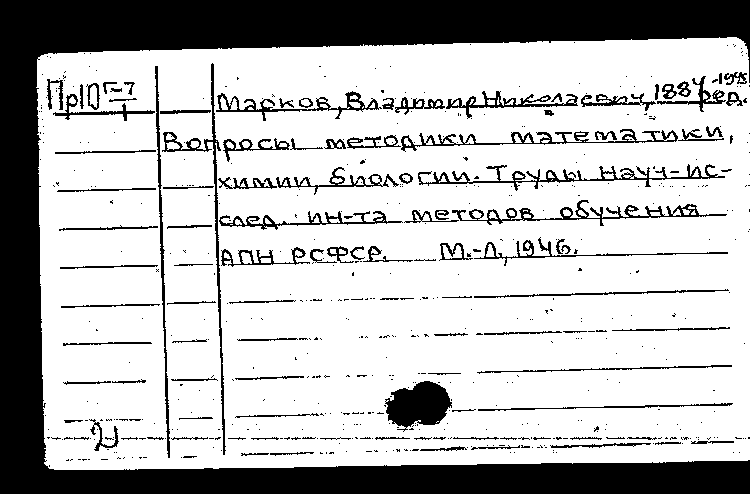 Пр10 Г-7
1
Марков, Владимир Николаевич, 1884-1945 ред.
Вопросы методики математики,
химии, биологии. Труды науч-ис-
след. ин-та методов обучения
АПН РСФСР. М.-Л., 1946.